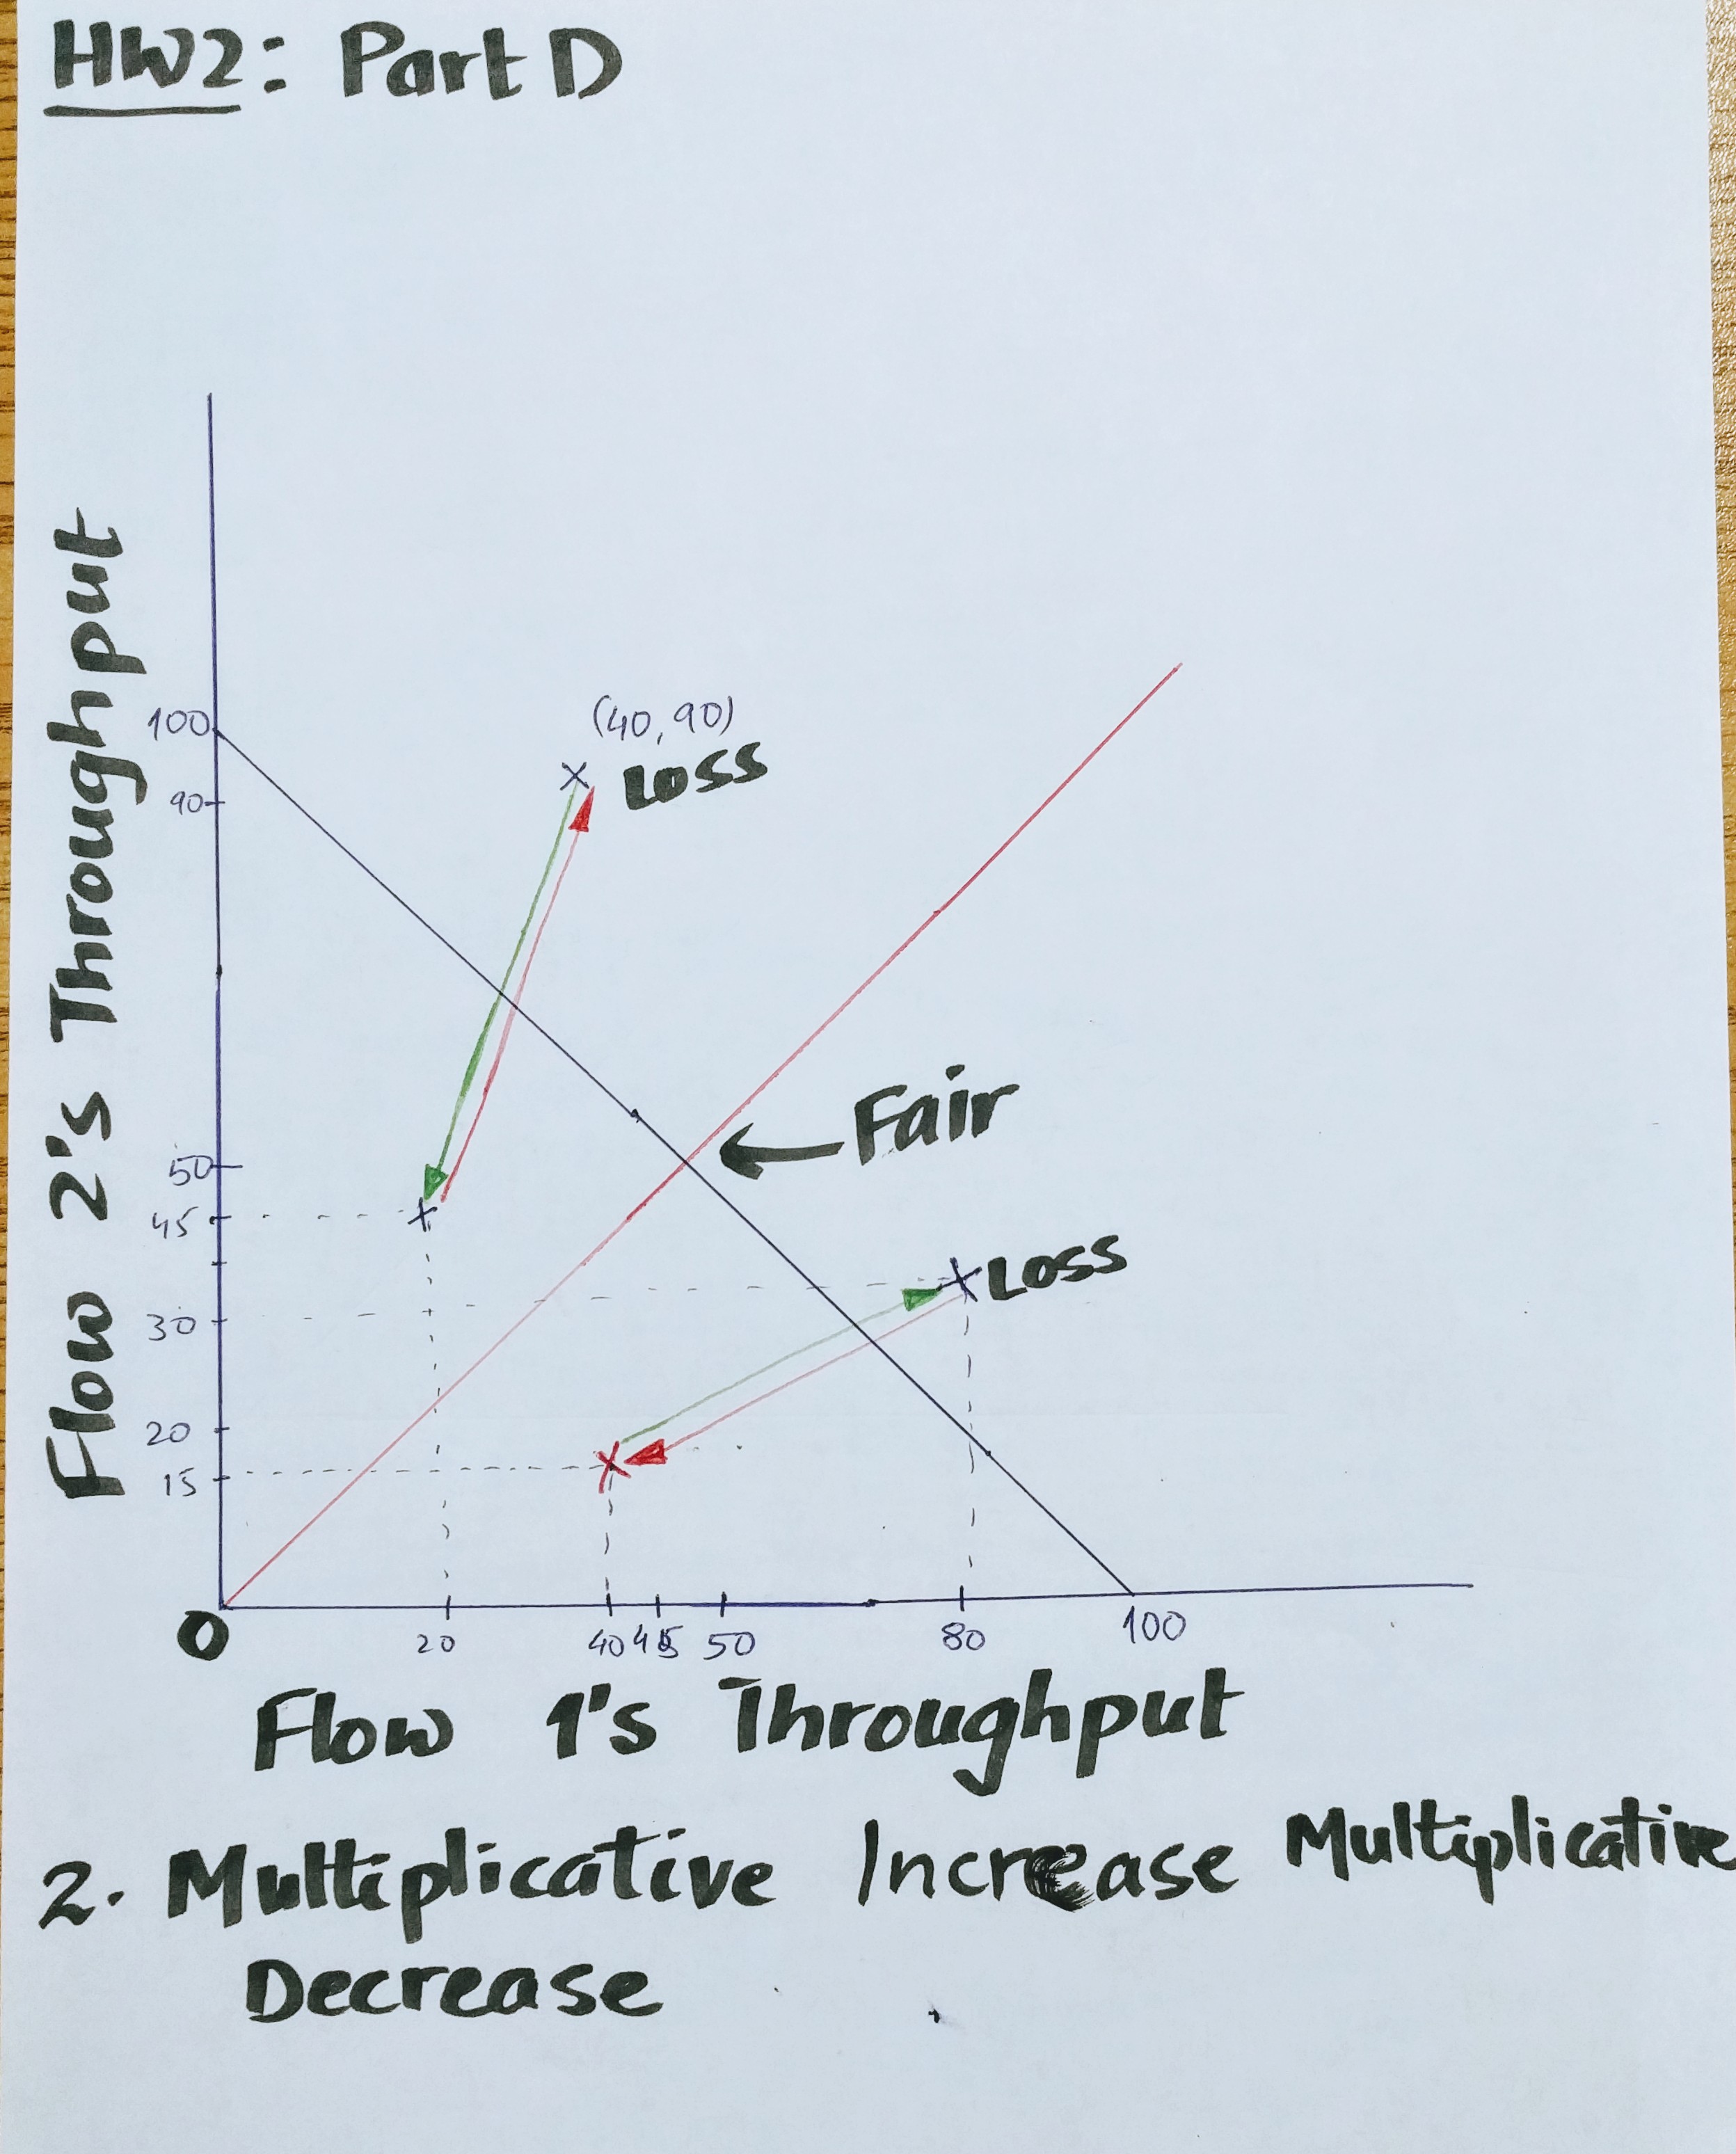 HW2: Part D
Flow 2's Throughput
100
(40, 90)
Loss
90
Fair
50
45
Loss
30
20
15
0
20 40 45 50 80 100
Flow 1's Throughput
2. Multiplicative Increase Multiplicative
Decrease